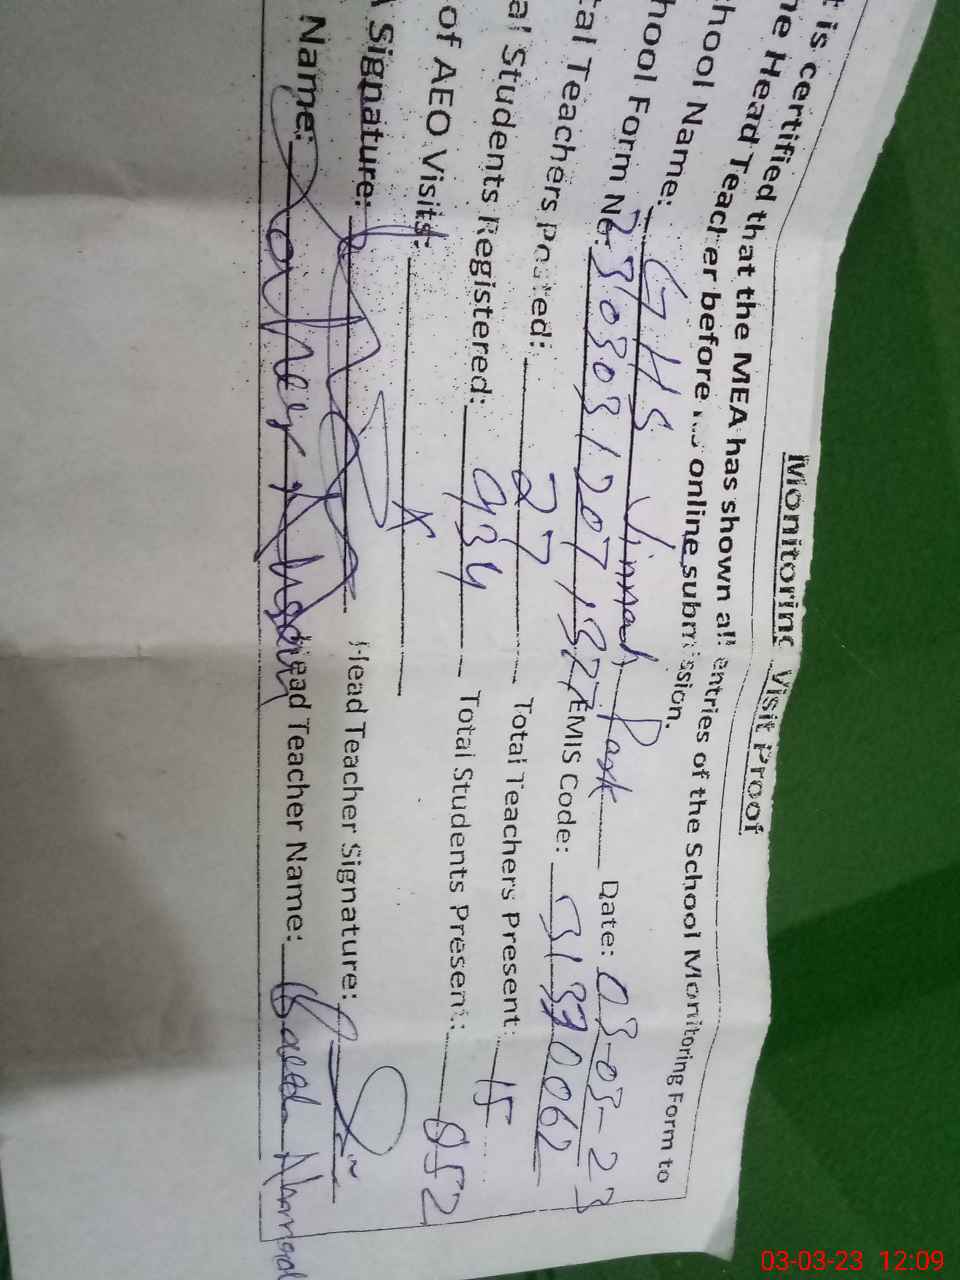 Monitoring Visit Proof
t is certified that the MEA has shown all entries of the School Monitoring Form to
he Head Teacher before online submission.
hool Name: GHS Jinnah Park Date: 03-03-23
hool Form No: 23030312071327 EMIS Code: 31370062
tal Teachers Posted: 27 Total Teachers Present: 15
al Students Registered: 934 Total Students Present: 852
of AEO Visits: X
Signature: Head Teacher Signature:
Name: Head Teacher Name:
03-03-23 12:09